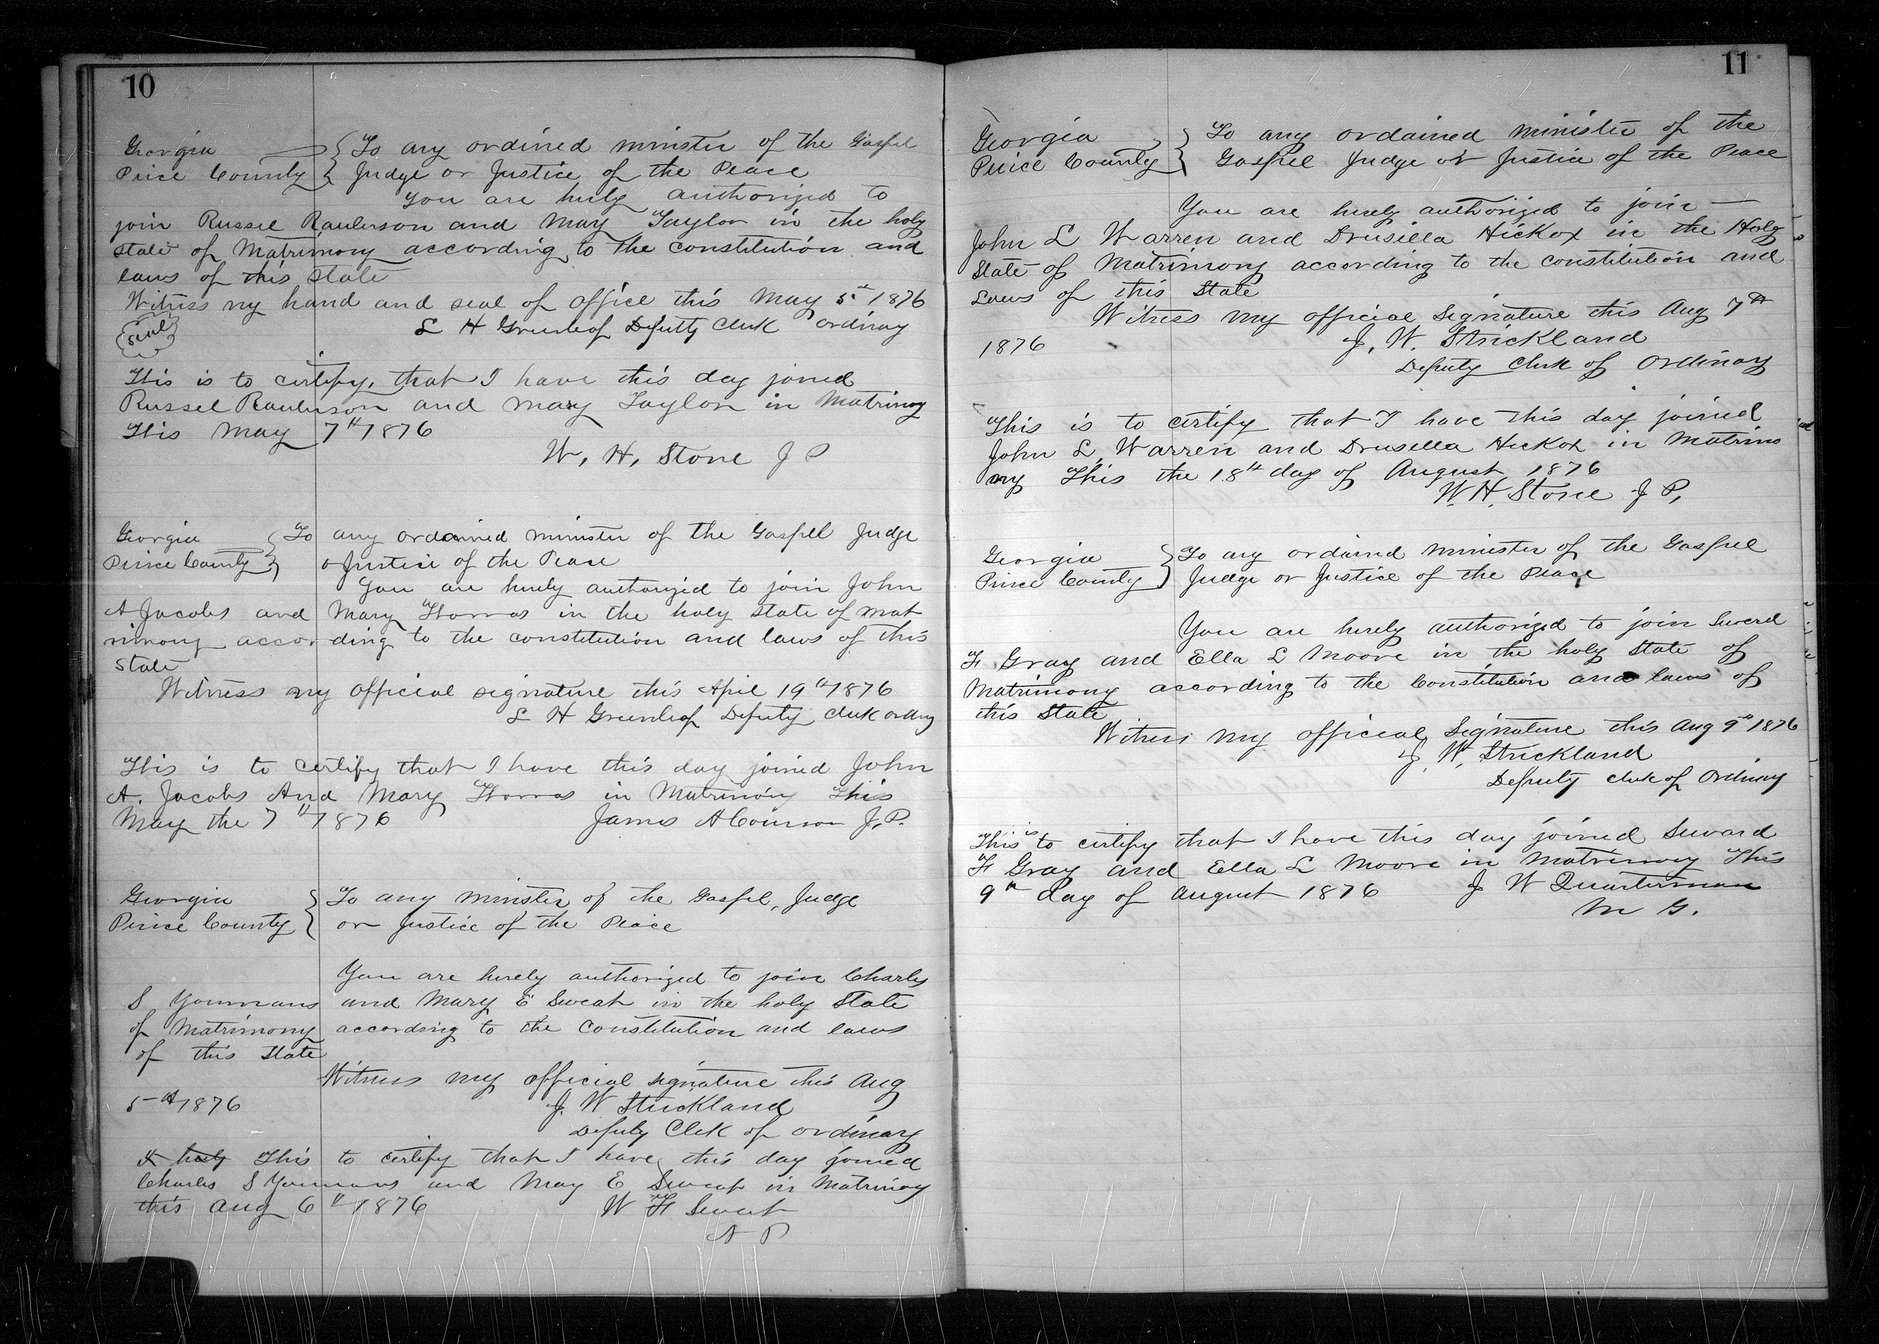 10
Georgia } To any ordined minister of the Gospel
Peirce County } Judge or Justice of the Peace
You are hirly authorized to
join Russel Raulerson and May Taylor in the holy
state of Matrimony according to the constitution and
laws of this state
Witness my hand and seal of office this May 5th 1876
seal L H Greenleof Deputy Clerk ordinay
This is to certify, that I have this day joined
Russel Raulerson and Mary Taylor in Matrimoy
This May 7th 1876
W, H, Stone J P
Georgia } To any ordained minister of the Gospel Judge
Peirce County } or Justice of the Peace
You are hirly authorized to join John
A Jacobs and Mary Thomas in the holy state of mat
rimony according to the constitution and laws of this
state
Witness my official signature this April 19th 1876
L H Greenleof Deputy clerk ordiny
This is to certify that I have this day joined John
A. Jacobs And Mary Thomas in Matrimony This
May the 7th 1876 James A Courson J, P.
Georgia } To any minister of the Gospel, Judge
Peirce County } or Justice of the Peace
You are hirely authorized to join Charles
S Youmans and Mary E Sweat in the holy State
of Matrimony according to the constitution and laws
of this State
Witness my official signature this Aug
5th 1876 J. W Strickland
Deputy Clerk of ordinary
This to certify that I have this day joined
Charles S Youmans and May E Sweat in Matrimoy
this Aug 6th 1876 W F Sweat
N P
11
Georgia } To any ordained minister of the
Peirce County } Gospel Judge or Justice of the Peace
You are hirely authorized to join —
John L Warren and Drusilla Hickox in the Holy
State of Matrimony according to the constitution and
Laws of this State
Witness my official Signature this Aug 7th
1876 J. W. Strickland
Deputy Clerk of Ordinary
This is to certify that I have this day joined
John L Warren and Drusilla Hickox in Matrimo
ny This the 18th day of August 1876
W. H. Stone J P,
Georgia } To any ordained minister of the Gospel
Peirce County } Judge or Justice of the Peace
You are hirely authorized to join Seward
F Gray and Ella L Moore in the holy State of
Matrimony according to the Constitution and laws of
this State
Witness my official Signature this Aug 9th 1876
J. W. Strickland
Deputy clerk of Ordinay
This is to certify that I have this day joined Seward
F Gray and Ella L Moore in Matrimony This
9th day of August 1876 J W Quarterman
M G.